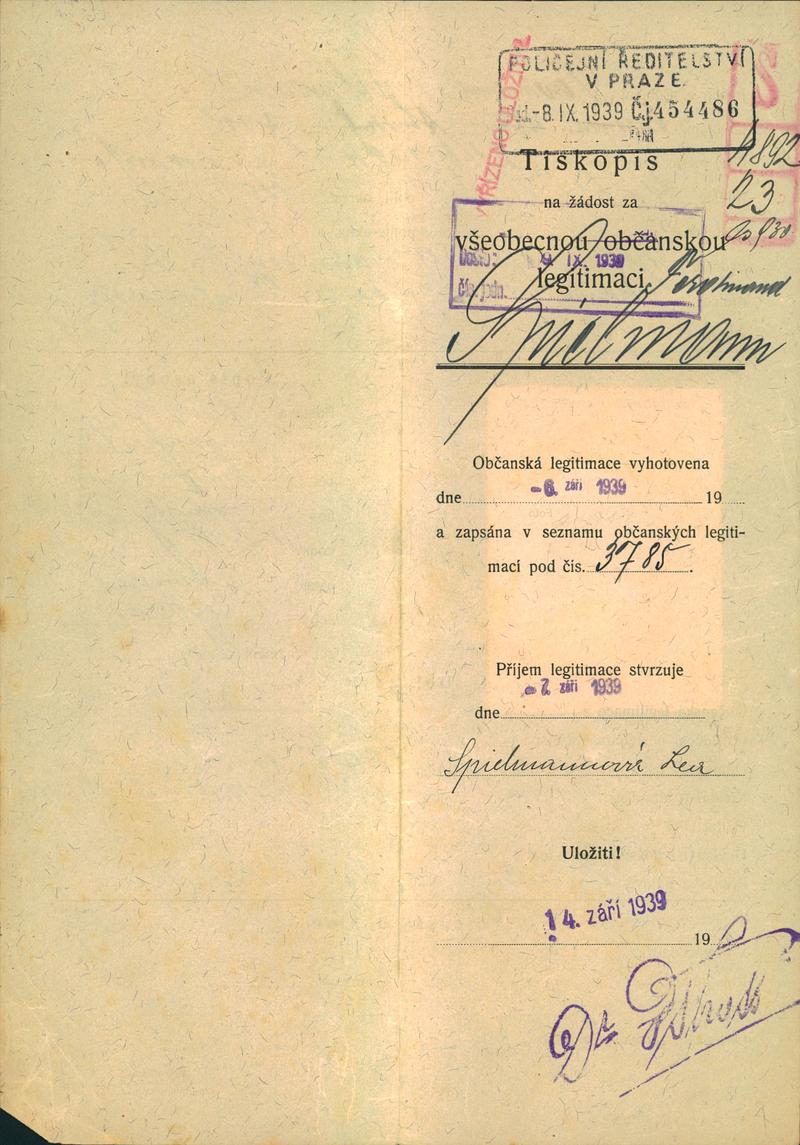 POLICEJNÍ ŘEDITELSTVÍ
V PRAZE
-8. IX. 1939 Čj. 454486
Tiskopis
1892
23
na žádost za
všeobecnou občanskou
IX. 1939
legitimaci
Ferdinand
Spielmann
Občanská legitimace vyhotovena
- 6. září 1939
dne 19
a zapsána v seznamu občanských legiti-
mací pod čís. 3785.
Příjem legitimace stvrzuje
- 7. září 1939
dne
Spielmannová Lea
Uložiti!
14. září 1939
19
Dr.